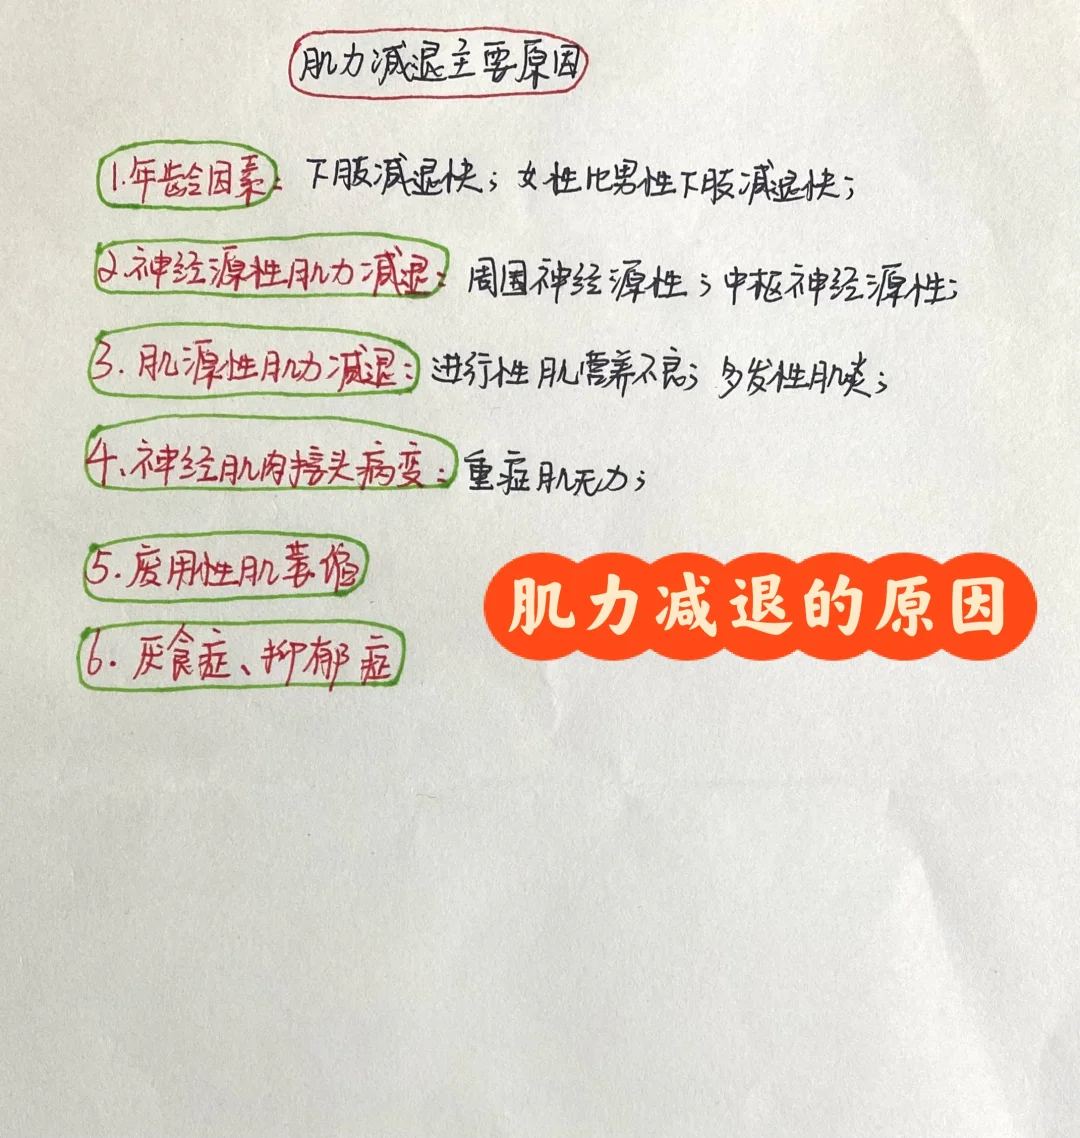 肌力减退主要原因
1.年龄因素：下肢减退快；女性比男性下肢减退快；
2.神经源性肌力减退：周围神经源性；中枢神经源性；
3.肌源性肌力减退：进行性肌营养不良；多发性肌炎；
4、神经肌肉接头病变：重症肌无力；
5.废用性肌萎缩
肌力减退的原因
6.厌食症、抑郁症